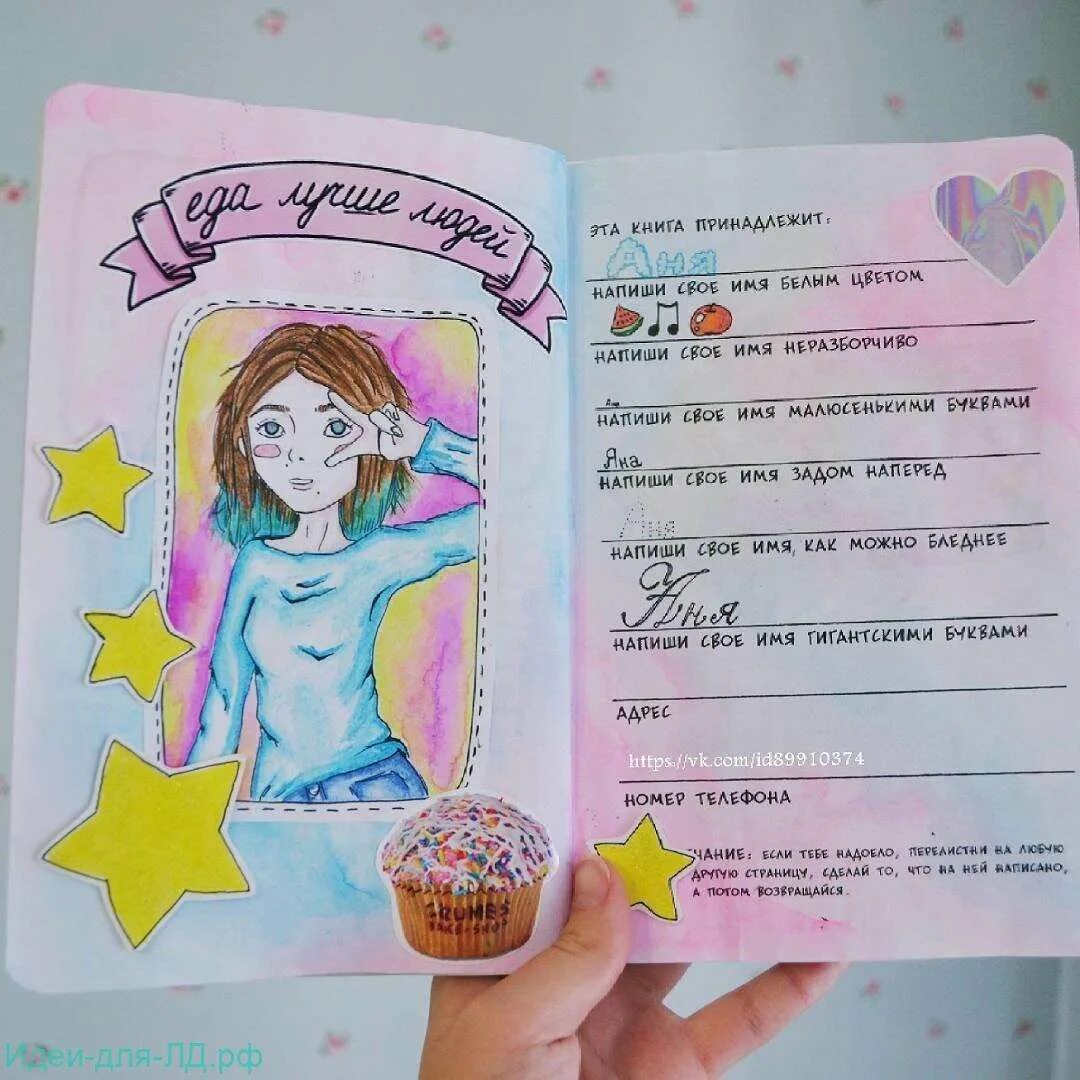 еда лучше людей
ЭТА КНИГА ПРИНАДЛЕЖИТ:
Аня
НАПИШИ СВОЕ ИМЯ БЕЛЫМ ЦВЕТОМ
НАПИШИ СВОЕ ИМЯ НЕРАЗБОРЧИВО
Аня
НАПИШИ СВОЕ ИМЯ МАЛЮСЕНЬКИМИ БУКВАМИ
Яна
НАПИШИ СВОЕ ИМЯ ЗАДОМ НАПЕРЕД
Аня
НАПИШИ СВОЕ ИМЯ, КАК МОЖНО БЛЕДНЕЕ
Аня
НАПИШИ СВОЕ ИМЯ ГИГАНТСКИМИ БУКВАМИ
АДРЕС
https://vk.com/id89910374
НОМЕР ТЕЛЕФОНА
ЧАНИЕ: ЕСЛИ ТЕБЕ НАДОЕЛО, ПЕРЕЛИСТНИ НА ЛЮБУЮ
ДРУГУЮ СТРАНИЦУ, СДЕЛАЙ ТО, ЧТО НА НЕЙ НАПИСАНО,
А ПОТОМ ВОЗВРАЩАЙСЯ.
CRUMBS
BAKE SHOP
Идеи-для-ЛД.рф